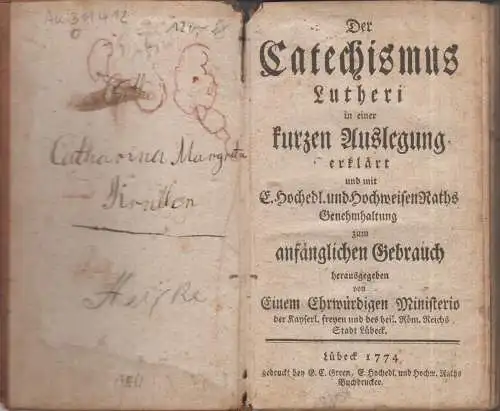 Catharina Margreta
Der
Catechismus
Lutheri
in einer
kurzen Auslegung
erklärt
und mit
E. Hochedl. und Hochweisen Raths
Genehmhaltung
zum
anfänglichen Gebrauch
herausgegeben
von
Einem Ehrwürdigen Ministerio
der Kayserl. freyen und des heil. Röm. Reichs
Stadt Lübeck.
Lübeck 1774
gedruckt bey G. C. Green, E. Hochedl. und Hochw. Raths
Buchdrucker.